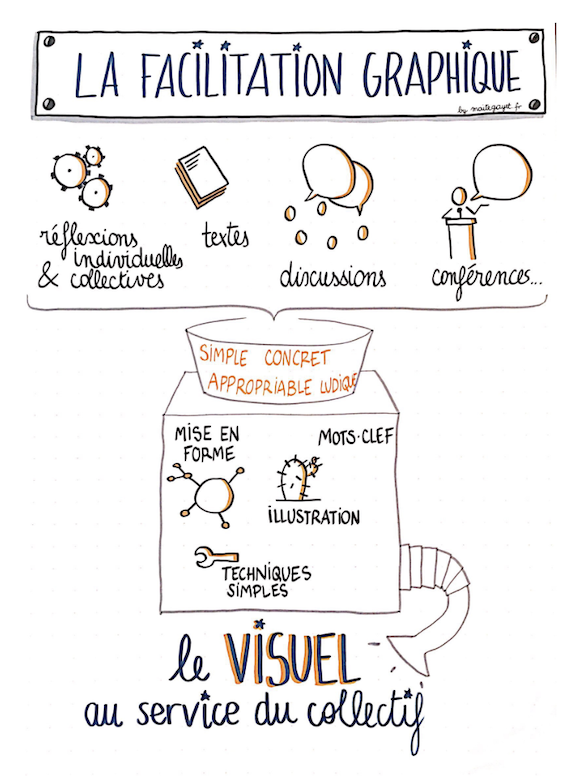 LA FACILITATION GRAPHIQUE
by maitegayet.fr
réflexions
individuelles
& collectives
textes
discussions
conférences...
SIMPLE CONCRET
APPROPRIABLE LUDIQUE
MISE EN
FORME
MOTS·CLEF
ILLUSTRATION
TECHNIQUES
SIMPLES
le VISUEL
au service du collectif